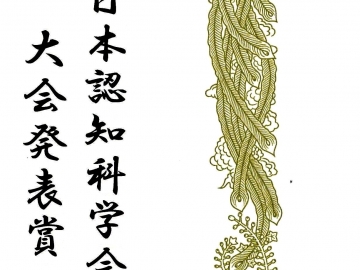 日本認知科学会
大会発表賞